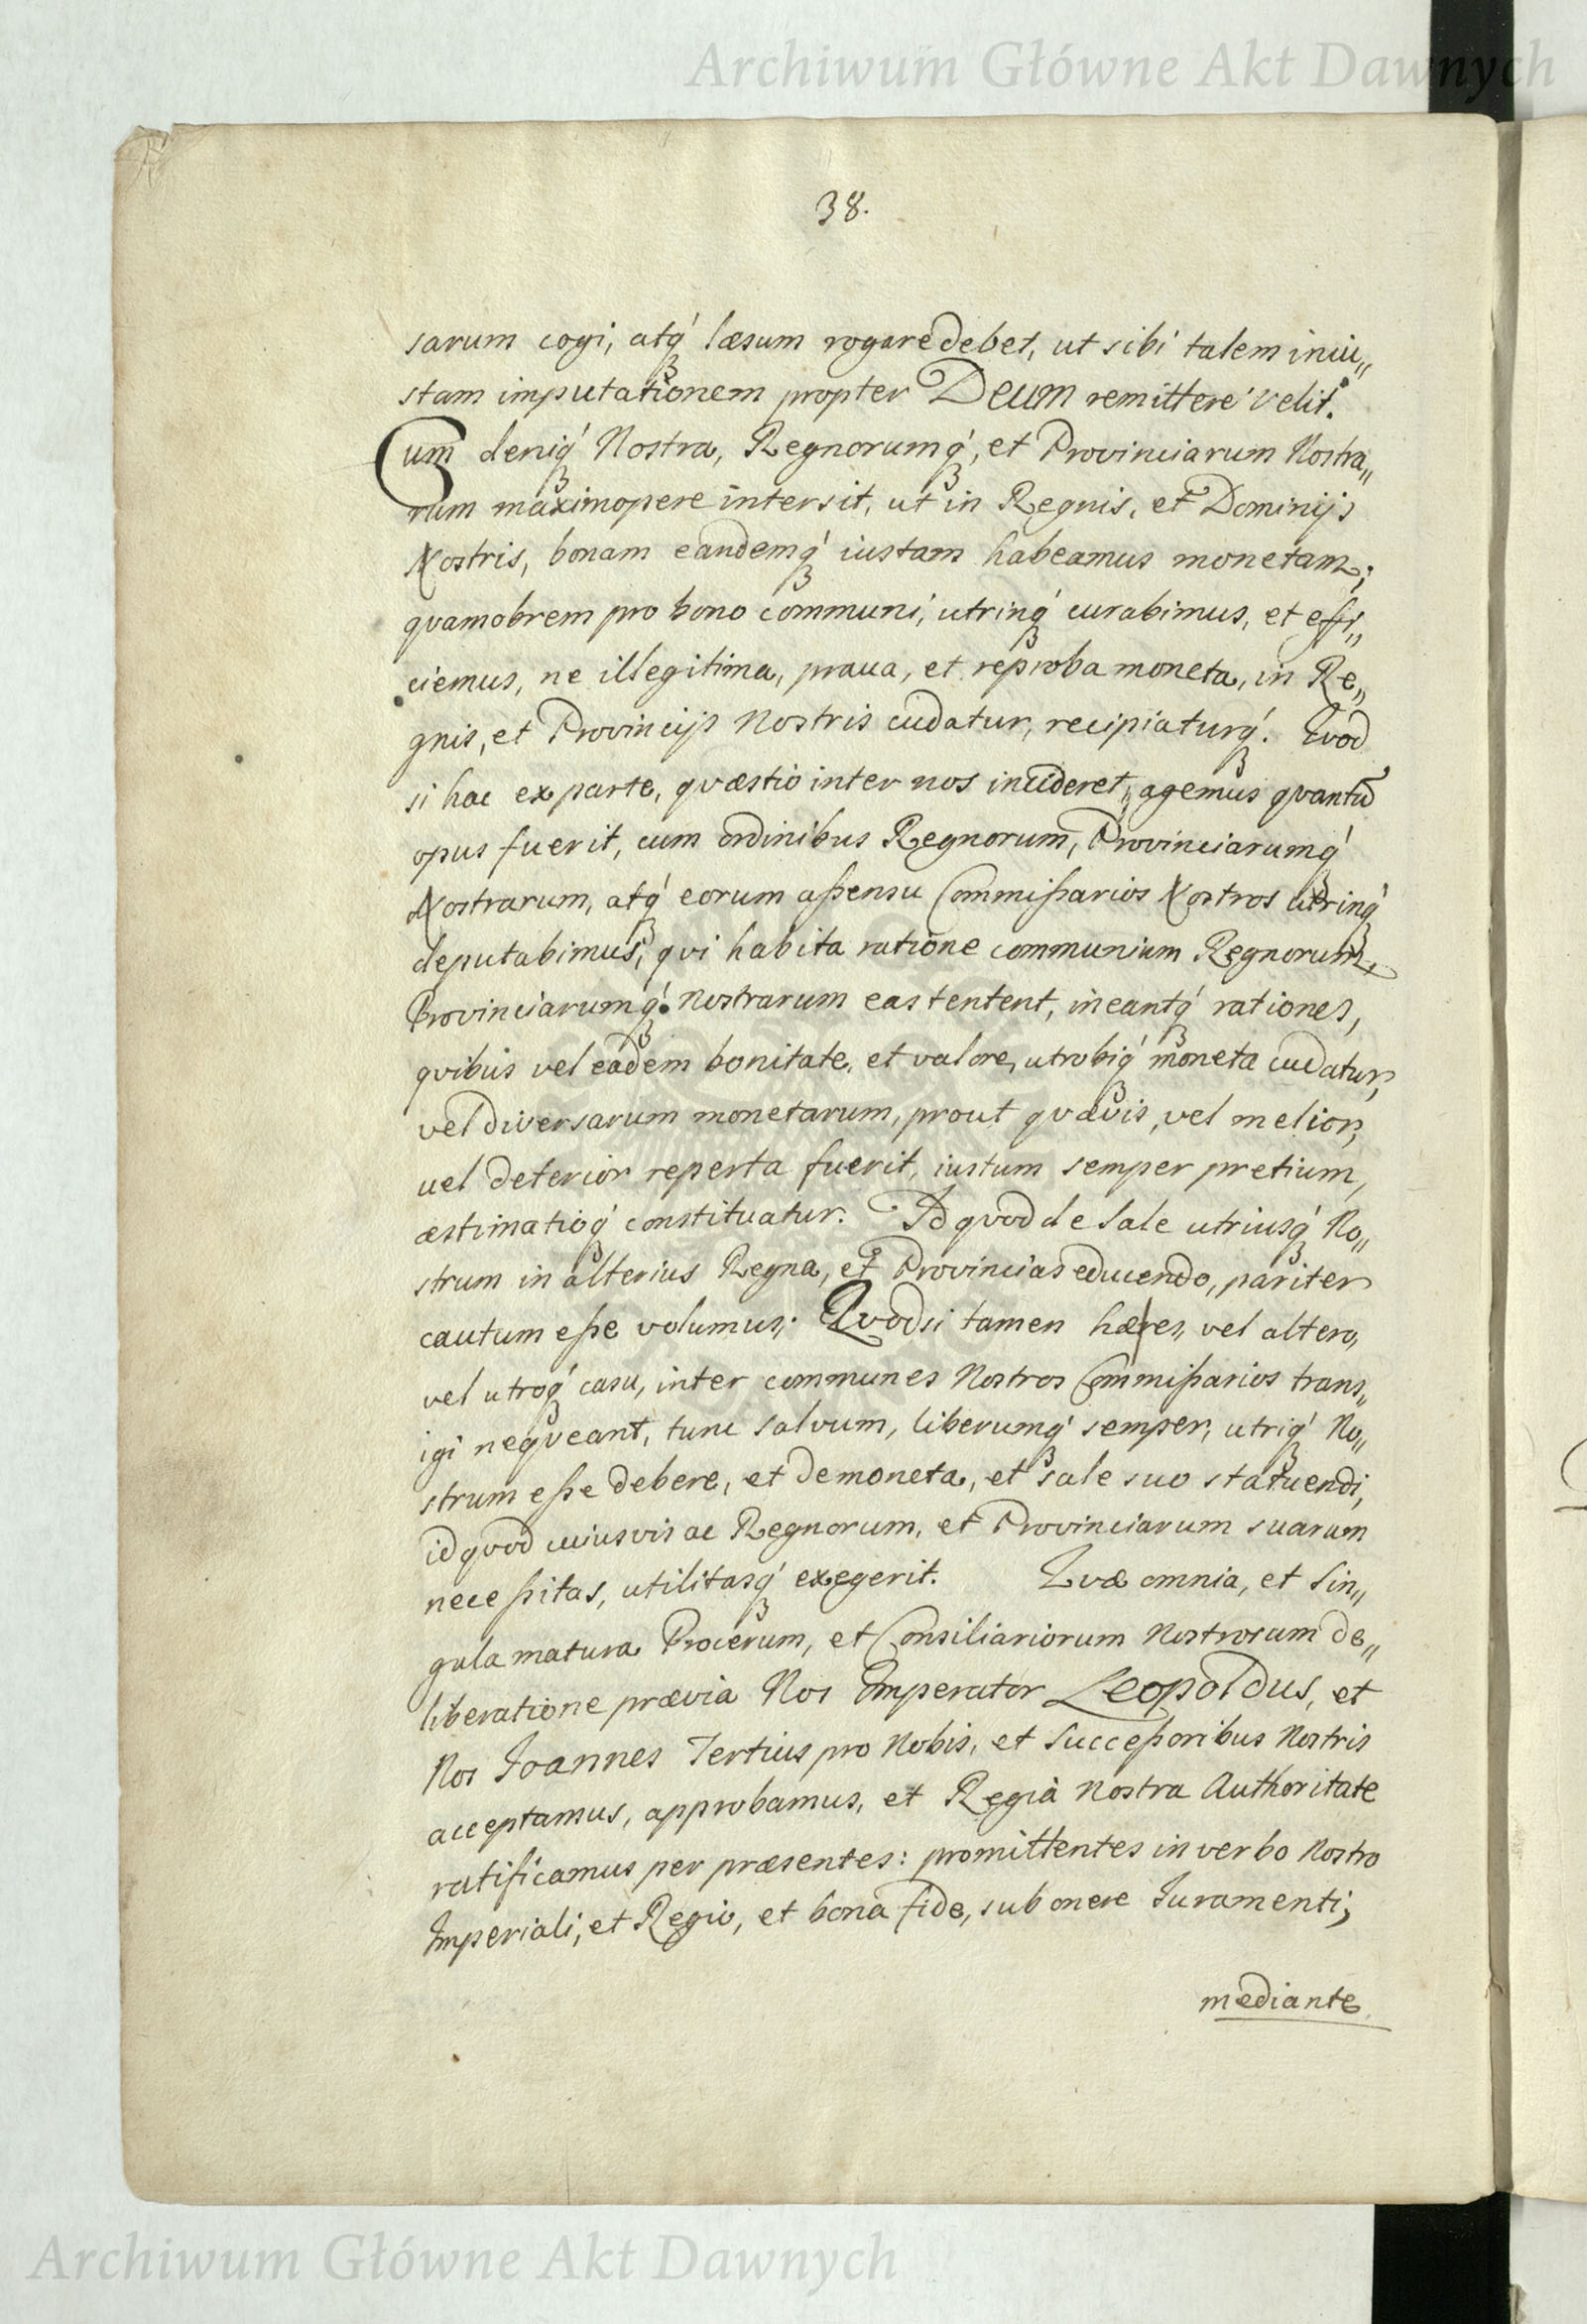 Archiwum Główne Akt Dawnych
38.
sarum cogi, atq́ læsum rogare debet, ut sibi talem iniu„
stam imputationem propter Deum remittere velit.
Cum deniq́ Nostra, Regnorumq́, et Provinciarum Nostra„
rum maximopere intersit, ut in Regnis, et Dominijs
Nostris, bonam eandemq́ iustam habeamus monetam;
qvamobrem pro bono communi, utrinq́ curabimus, et effi„
ciemus, ne illegitima, praua, et reproba moneta, in Re„
gnis, et Provincijs Nostris cudatur, recipiaturq́. Qvod
si hac ex parte, qvæstio inter nos incideret, agemus qvantū
opus fuerit, cum ordinibus Regnorum, Provinciarumq́
Nostrarum, atq́ eorum aßensu Commißarios Nostros utrinq́
deputabimus, qvi habita ratione communium Regnorum,
Provinciarumq́ Nostrarum eas tentent, ineantq́ rationes,
qvibus vel eadem bonitate, et valore, utrobiq́ moneta cudatur,
vel diversarum monetarum, prout qvævis, vel melior,
uel deterior reperta fuerit, iustum semper pretium,
æstimatioq́ constituatur. Id qvod de Sale utriusq́ No„
strum in alterius Regna, et Provincias educendo, pariter
cautum eße volumus; Qvodsi tamen hæ res, vel altero,
vel utroq́ casu, inter communes Nostros Commißarios trans„
igi neqveant, tunc salvum, liberumq́ semper, utriq́ No„
strum eße debere, et de moneta, et sale suo statuendi,
id qvod cuiusvis ac Regnorum, et Provinciarum suarum
neceßitas, utilitasq́ exegerit. Qvæ omnia, et Sin„
gula matura Procerum, et Consiliariorum Nostrorum de„
liberatione prævia Nos Imperator Leopoldus, et
Nos Ioannes Tertius pro Nobis, et Succeßoribus Nostris
acceptamus, approbamus, et Regià Nostra Authoritate
ratificamus per præsentes: promittentes in verbo Nostro
Imperiali, et Regio, et bona fide, sub onere Iuramenti;
mediante
Archiwum Główne Akt Dawnych